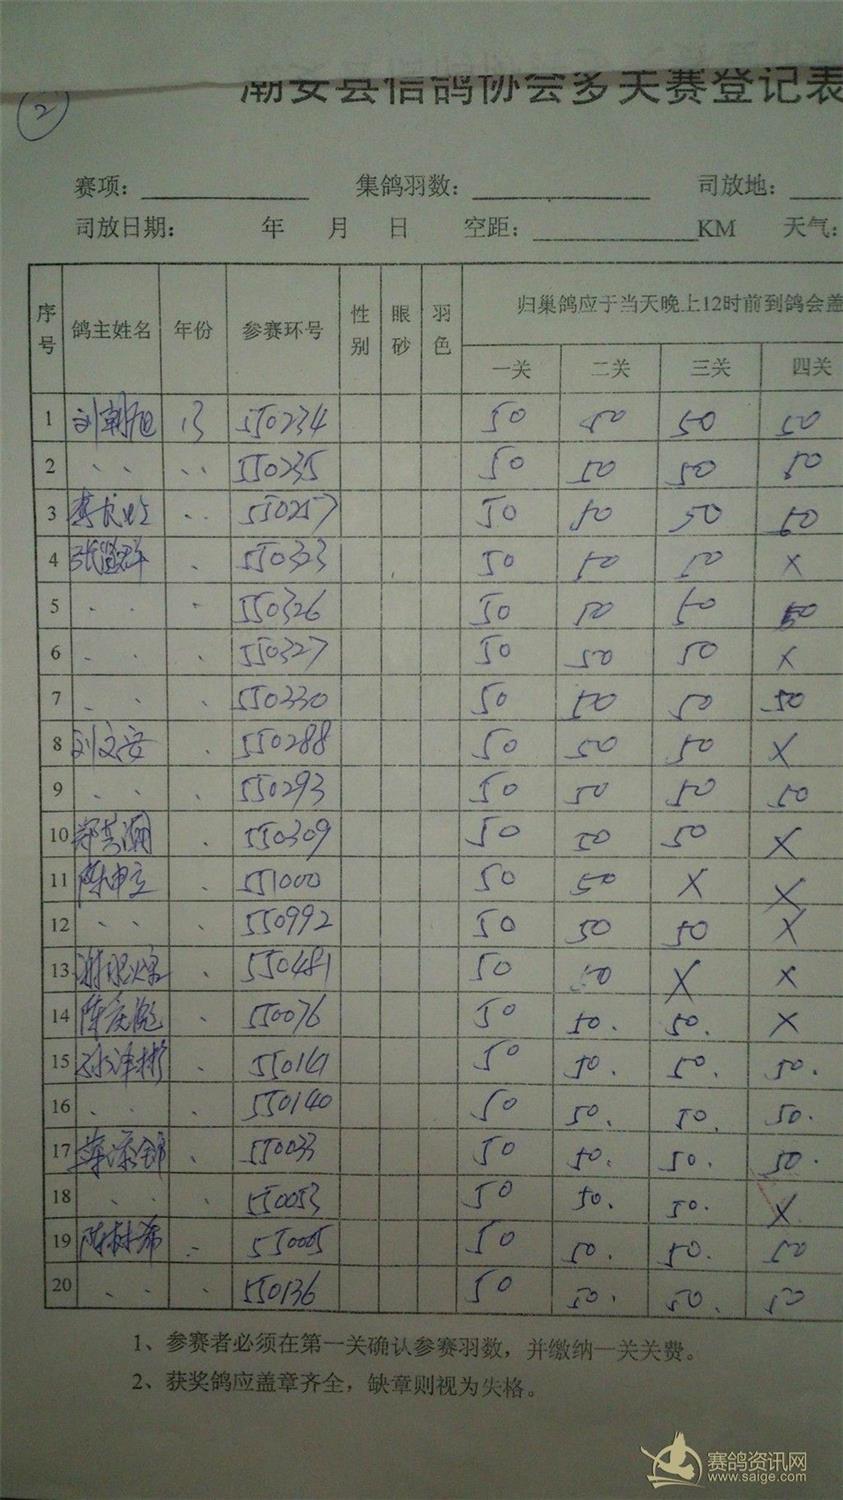 2
潮安县信鸽协会多关赛登记表
赛项： 集鸽羽数： 司放地：
司放日期： 年 月 日 空距： KM 天气：
序号 鸽主姓名 年份 参赛环号 性别 眼砂 羽色 归巢鸽应于当天晚上12时前到鸽会盖
一关 二关 三关 四关
1 刘朝旭 13 550234 50 50 50 50
2 、、 、、 550235 50 50 50 50
3 、、 550257 50 50 50 50
4 、 550323 50 50 50 ×
5 、、 、 550326 50 50 50 50
6 、、 、 550327 50 50 50 ×
7 、、 、 550330 50 50 50 50
8 刘文安 、 550288 50 50 50 ×
9 、、 、 550293 50 50 50 50
10 、 550309 50 50 50 ×
11 陈申立 、 551000 50 50 × ×
12 、、 、 550992 50 50 50 ×
13 、 550481 50 50 × ×
14 、 550076 50 50. 50. ×
15 、 550141 50 50. 50. 50.
16 、、 、 550140 50 50. 50. 50.
17 、 550033 50 50. 50. 50.
18 、、 、 550053 50 50. 50. ×
19 陈树希 、 550005 50 50. 50. 50
20 、、 、 550136 50 50. 50. 50
1、参赛者必须在第一关确认参赛羽数，并缴纳一关关费。
2、获奖鸽应盖章齐全，缺章则视为失格。
赛鸽资讯网
www.saige.com